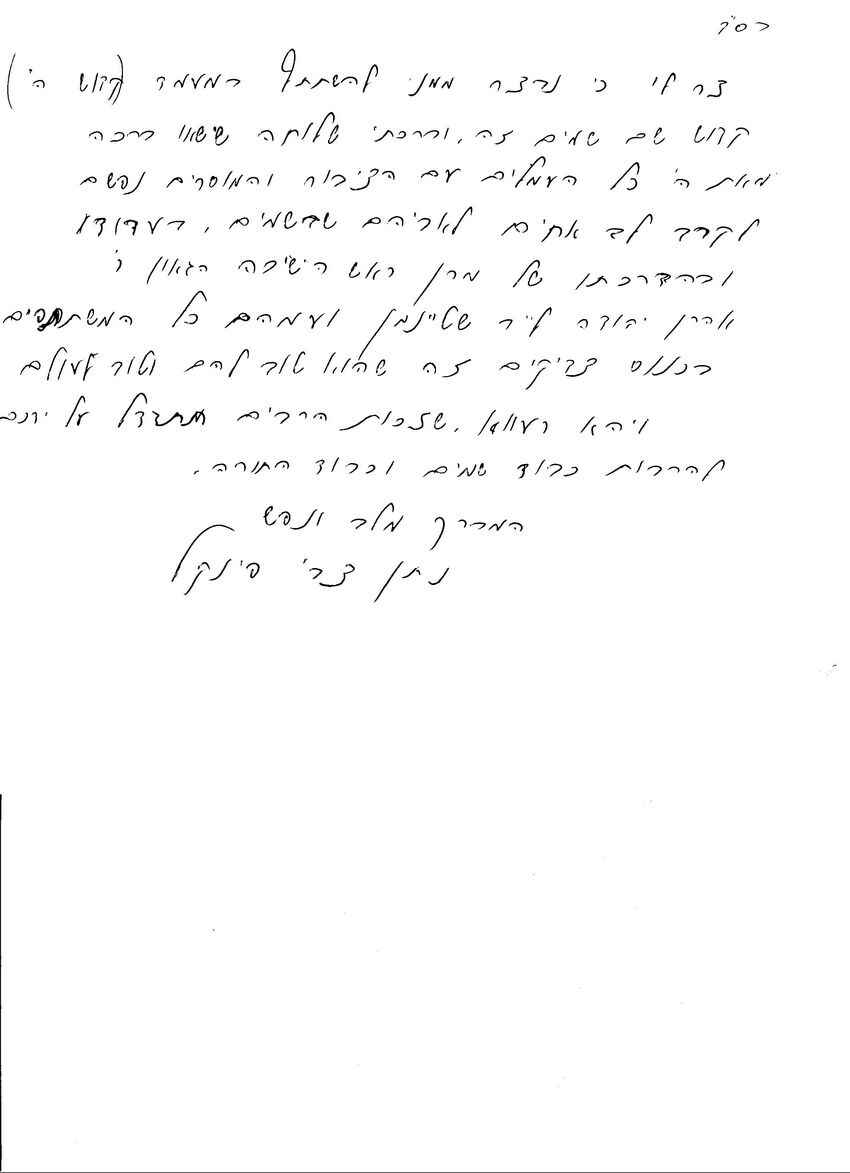 בס"ד
צר לי כי נבצר ממני להשתתף במעמד (קדוש ה')
קדוש שם שמים זה, וברכתי שלוחה שישאו ברכה
מאת ה' כל העמלים עם הציבור והמוסרים נפשם
לקרב לב אחים לאביהם שבשמים, בעדודו
ובהדרכתו של מרן ראש הישיבה הגאון ר'
אהרן יהודה ליב שטיינמן ועמהם כל המשתתפים
בכנוס צדיקים זה שהוא טוב להם וטוב לעולם
ויהא רעווא, שזכות הרבים תגדל על ידכם
להרבות כבוד שמים וכבוד התורה.
המברך מלב ונפש
נתן צבי פינקל